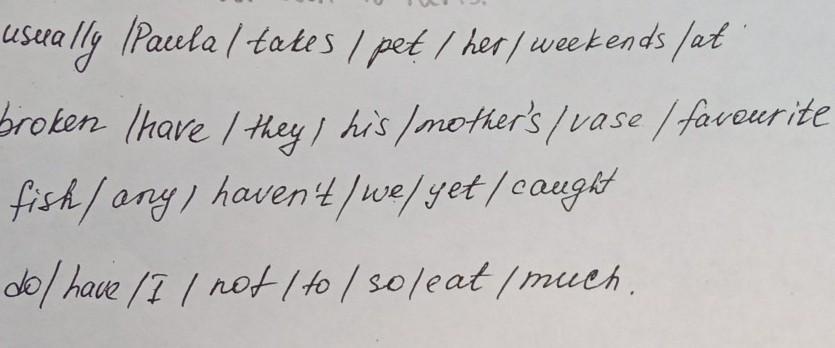 usually / Paula / takes / pet / her / weekends / at
broken / have / they / his / mother's / vase / favourite
fish / any / haven't / we / yet / caught
do / have / I / not / to / so / eat / much.